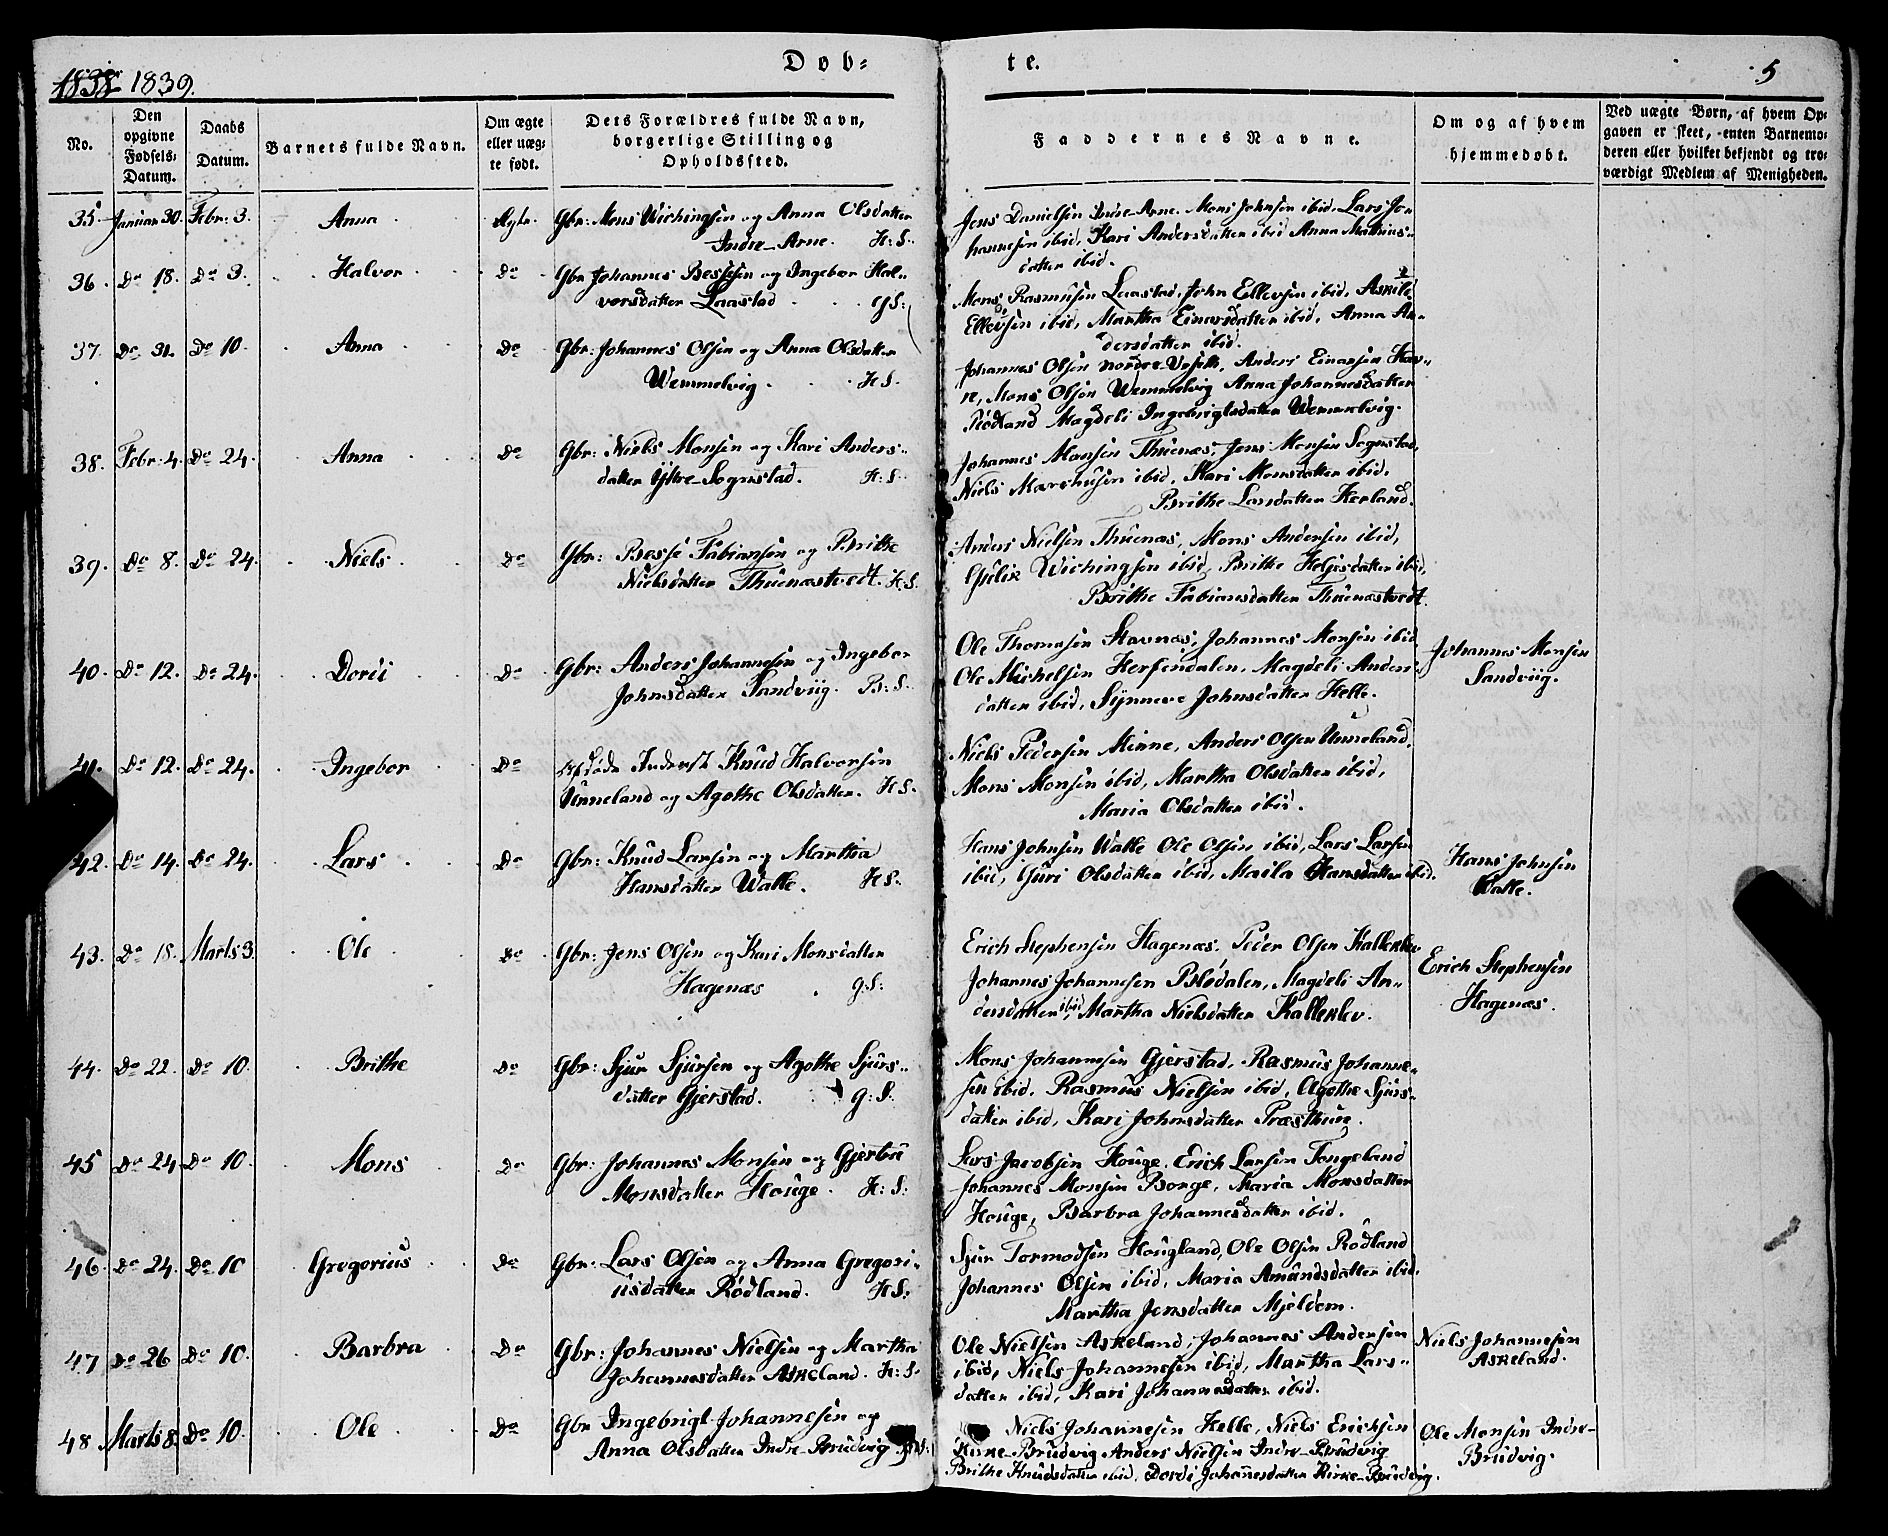 1838 1839.
Dob-
te.
5
No.
Den opgivne Fødsels-Datum.
Daabs Datum.
Barnets fulde Navn.
Om ægte eller uægte født.
Dets Forældres fulde Navn, borgerlige Stilling og Opholdssted.
Faddernes Navne.
Om og af hvem hjemmedøbt.
Ved uægte Børn, af hvem Opgaven er skeet, enten Barnemoderen eller hvilket bekjendt og troværdigt Medlem af Menigheden.
35. Januar 30. Febr: 3. Anna Ægte. Gbr: Mons Wichingsen og Anna Olsdatter
Indre-Arne. H: S.
Jens Danielsen Indre-Arne. Mons Johnsen ibid, Lars Jo-
hannesen ibid, Kari Andersdatter ibid Anna Mathias-
datter ibid.
36. Do 18. Do 3. Halvor Do Gbr Johannes Bessesen og Ingebor Hal-
vorsdatter Laastad G S:
Mons Rasmusen Laastad, John Ellevsen ibid, Askild
Ellevsen ibid, Martha Einarsdatter ibid, Anna An-
dersdatter ibid.
37. Do 31. Do 10. Anna Do Gbr: Johannes Olsen og Anna Olsdatter
Wemmelvig. H S.
Johannes Olsen nordre-, Anders Einarsen Hav-
re, Mons Olsen Wemmelvig Anna Johannesdatter
Rødland Magdeli Ingebrigtsdatter Wemmelvig.
38. Febr: 4. Do 24. Anna Do Gbr: Niels Monsen og Kari Anders-
datter Yttre-Sognstad. H: S.
Johannes Monsen Thuenæs, Jens Monsen Sognstad,
Niels Marchusen ibid, Kari Monsdatter ibid,
Brithe Larsdatter Herland.
39. Do 8. Do 24. Niels Do Gbr: Besse Fabiansen og Brithe
Nielsdatter Thuenæstvedt. H S.
Anders Nielsen Thuenæs, Mons Andersen ibid,
Gulik Wichingsen ibid, Brithe Heljesdatter ibid,
Brithe Fabiansdatter Thuenæstvedt.
40. Do 12. Do 24. Dordi Do Gbr: Anders Johannesen og Ingebor
Johnsdatter Sandviig. B: S.
Ole Thomasen Stavnæs, Johannes Monsen ibid
Ole Michelsen Herfindalen, Magdeli Anders-
datter ibid, Synneve Johnsdatter Helle.
Johannes Monsen
Sandviig.
41. Do 12. Do 24. Ingebor Do Inderst Knud Halvorsen
Unneland og Agothe Olsdatter. H S.
Niels Pedersen Minne, Anders Olsen Unneland,
Mons Monsen ibid, Martha Olsdatter ibid,
Maria Olsdatter ibid.
42. Do 14. Do 24. Lars Do Gbr: Knud Larsen og Martha
Hansdatter Walle. H S.
Hans Johnsen Walle Ole Olsen ibid, Lars Larsen
ibid, Guri Olsdatter ibid, Maila Hansdatter ibid.
Hans Johnsen
Walle.
43. Do 18. Marts 3. Ole Do Gbr: Jens Olsen og Kari Monsdatter
Hagenæs G: S:
Erich Stephensen Hagenæs, Peder Olsen Kalleklev
Johannes Johannesen Blødalen, Magdeli An-
dersdatter ibid, Martha Nielsdatter Kalleklev.
Erich Stephensen
Hagenæs.
44. Do 22. Do 10. Brithe Do Gbr: Sjur Sjursen og Agothe Sjurs-
datter Gjerstad. G: S:
Mons Johannesen Gjerstad, Rasmus Johanne-
sen ibid, Rasmus Nielsen ibid, Agothe Sjurs-
datter ibid, Kari Johnsdatter Præsthun.
45 Do 24. Do 10. Mons Do Gbr: Johannes Monsen og Gjertrü
Monsdatter Houge. H: S:
Lars Jacobsen Houge, Erich Larsen Tongeland
Johannes Monsen Borge, Maria Monsdatter
Houge, Barbra Johannesdatter ibid.
46. Do 24. Do 10 Gregorius Do Gbr: Lars Olsen og Anna Gregori-
usdatter Rødland. H S:
Sjur Tormodsen Hougland, Ole Olsen Rødland
Johannes Olsen ibid, Maria Amundsdatter ibid.
Martha Jensdatter Mjeldem.
47 Do 26 Do 10. Barbra Do Gbr: Johannes Nielsen og Martha
Johannesdatter Askeland. H: S.
Ole Nielsen Askeland, Johannes Andersen
ibid, Niels Johannesen ibid, Martha Lars-
datter ibid, Kari Johannesdatter ibid.
Niels Johannesen
Askeland.
48 Marts 8. Do 10. Ole Do Gbr Ingebrigt Johannesen og
Anna Olsdatter Indre-Bruvig
Niels Johannesen Helle, Niels Ericksen
Kirke-Brudvig Anders Nielsen Indre-Brudvig
Brithe Knudsdatter ibid, Dordi Johannesdatter Kirke-Brudvig.
Ole Monsen Indre-
Brudvig.